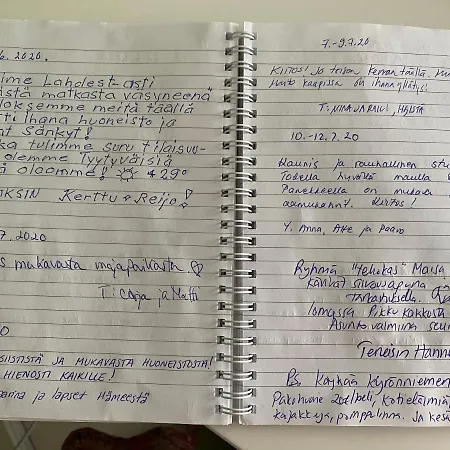 6. 2020.
mme Lahdest asti
stä matkasta väsyneenä
loksemme meitä täällä
tti ihana huoneisto ja
at sängyt!
ka tulimme suru tilaisuu-
olemme tyytyväisiä
ä oloomme! +29°
KSIN Kerttu + Reijo!
7. 2020
s mukavasta majapaikasta
T: Carja ja Matti
0
SIISTISTÄ JA MUKAVASTA HUONEISTOSTA!
HIENOSTI KAIKILLE!
arina ja lapset Hämeestä
7.-9.7.20
KIITOS! Jo toisen kerran täällä.
kaapissa on ihana yllätys!
T: NINA JA RAILI,
10.-12.7.20
Kaunis ja rauhallinen
Todella hyvällä maulla
Parvekkeella on mukava
aamukahvit. Kiitos!
Y. Anna, Atte ja Paavo
Ryhmä "Tehokas" Maisa
kävivät siivousapuna
lomassa Pikku Kakkosta
Asunto valmiina seur
Terveisin Hannu
Ps. Käykää Kyrönniemen
Pakohuone 2081peli, kotieläimiä
kajakkeja, pomppulinna. Ja kesä